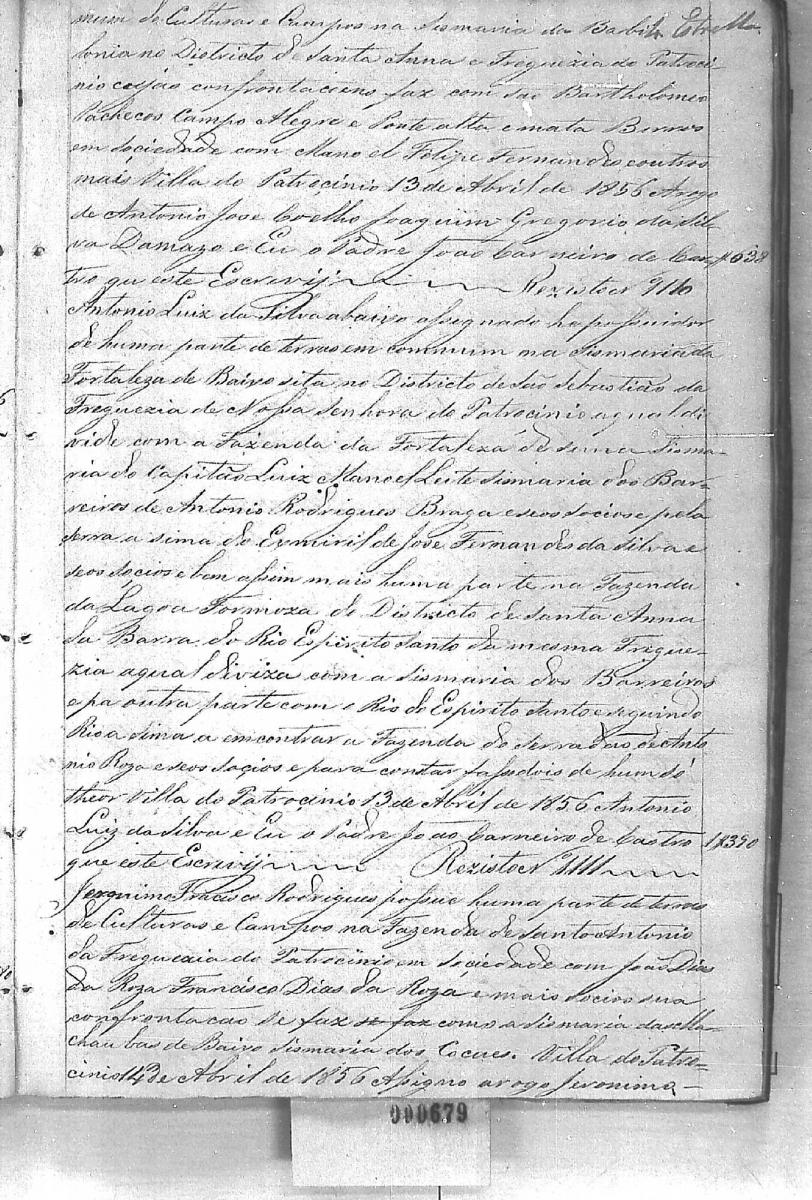 mum de Culturas e Campos na Sismaria da Barbita Estrella
lonia no Districto de Santa Anna e Freguezia do Patroci
nio confrontacoens faz com Sao Bartholomeo
Pachecos Campo Alegre e Ponte alta e mata Borros
em Sociedade com Manoel Felipe Fernandes e outros
mais Villa do Patrocinio 13 de Abril de 1856 Arogo
de Antonio Jose Coelho Joaquim Gregorio da Sil
va Damazo e Eu o Padre Joao Carneiro de Cas
tro qu este Escrevij Rezisto
Antonio Luiz da Silva abaixo assignado he possuidor
de huma parte de terras em commum na Sismaria da
Fortaleza de Baixo sita no Districto de São Sebastião da
Freguezia de Nossa Senhora do Patrocinio aqual di
vide com a Fazenda da Fortaleza de sima Sisma
ria do Capitão Luiz Manoel Leite Sismaria dos Bar
reiros de Antonio Rodrigues Braga e seos socios e pela
Serra a sima do de Jose Fernandes da Silva e
seos socios e bem assim mais huma parte na Fazenda
da Lagoa Formoza do Districto de Santa Anna
da Barra do Rio Espirito Santo da mesma Fregue
zia aqual diviza com a Sismaria dos Barreiros
e pa outra parte com o Rio do Espirito Santo e seguindo
Rio a sima a emcontrar a Fazenda do Serradão de Anto
nio Roza e seos socios e para constar fasso dois de hum só
theor Villa do Patrocinio 13 de Abril de 1856 Antonio
Luiz da Silva e Eu o Padre Joao Carneiro de Castro 1$350
que este Escrevij Rezisto
Jeronimo Fracisco Rodrigues possue huma parte de terras
de Culturas e Campos na Fazenda de Santo Antonio
da Freguezia do Patrocinio em Sociedade com João Dias
da Roza Francisco Dias da Roza e mais socios sua
confrontacao se faz se faz com a Sismaria das Ma
chaubas de Baixo Sismaria dos Cocaes. Villa do Patro
cinio 14 de Abril de 1856 Assigno arogo Jeronimo
000679